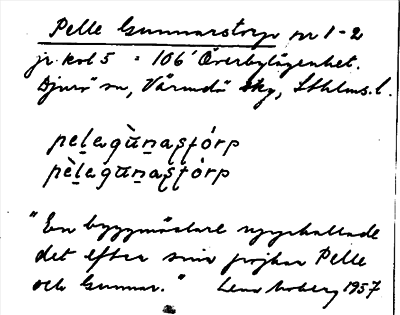 Pelle Gunnarstorp nr 1-2
jr kol 5 = 106' Överbylägenhet.
Djurö sn, Värmdö skg, Sthlms l.
pelagùnaʂtórp
pèlagunaʂtórp
"En byggmästare uppkallade
det efter sina pojkar Pelle
och Gunnar." Lena Moberg 1957